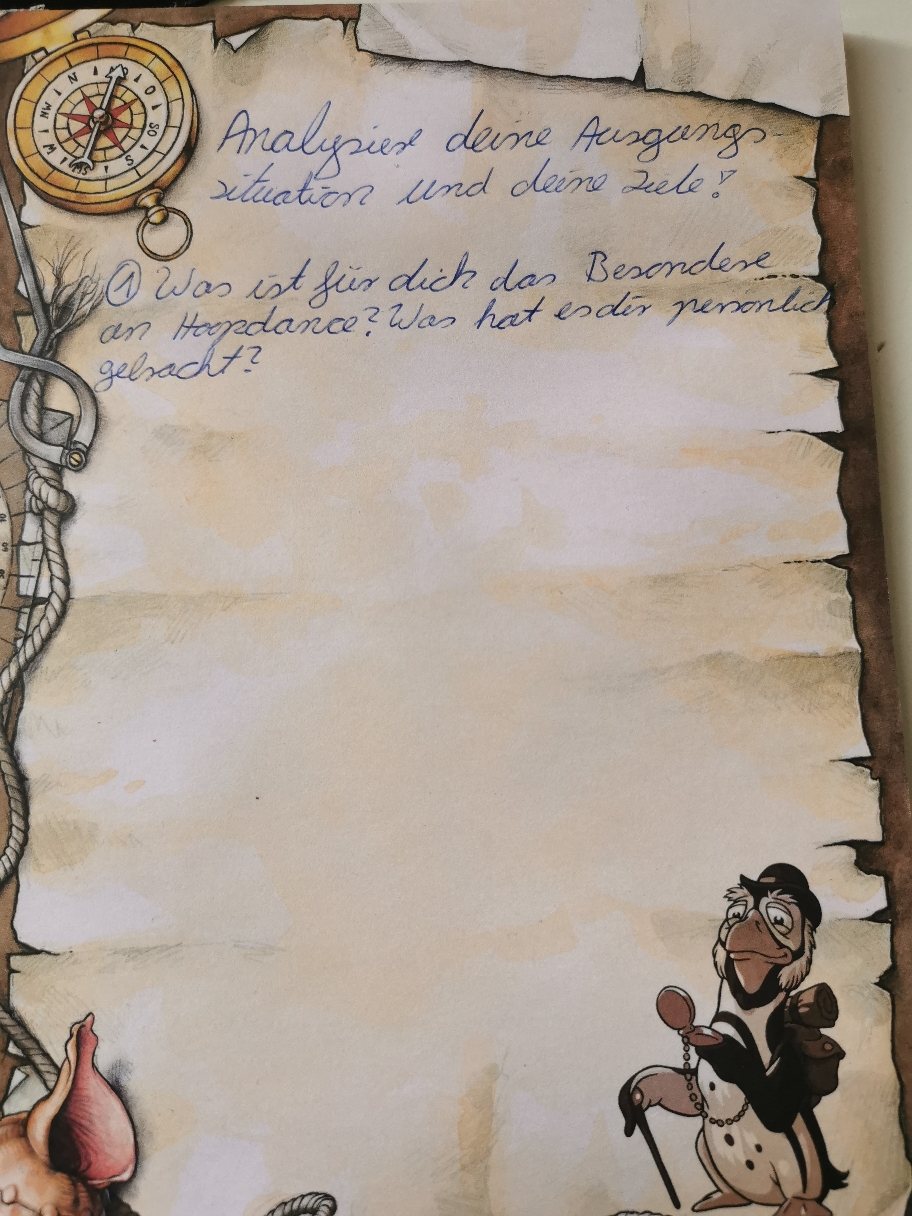 Analysiere deine Ausgangs-
situation und deine Ziele!
① Was ist für dich das Besondere
an Hoopdance? Was hat es dir persönlich
gebracht?
N
O
SO
S
SW
W
NW